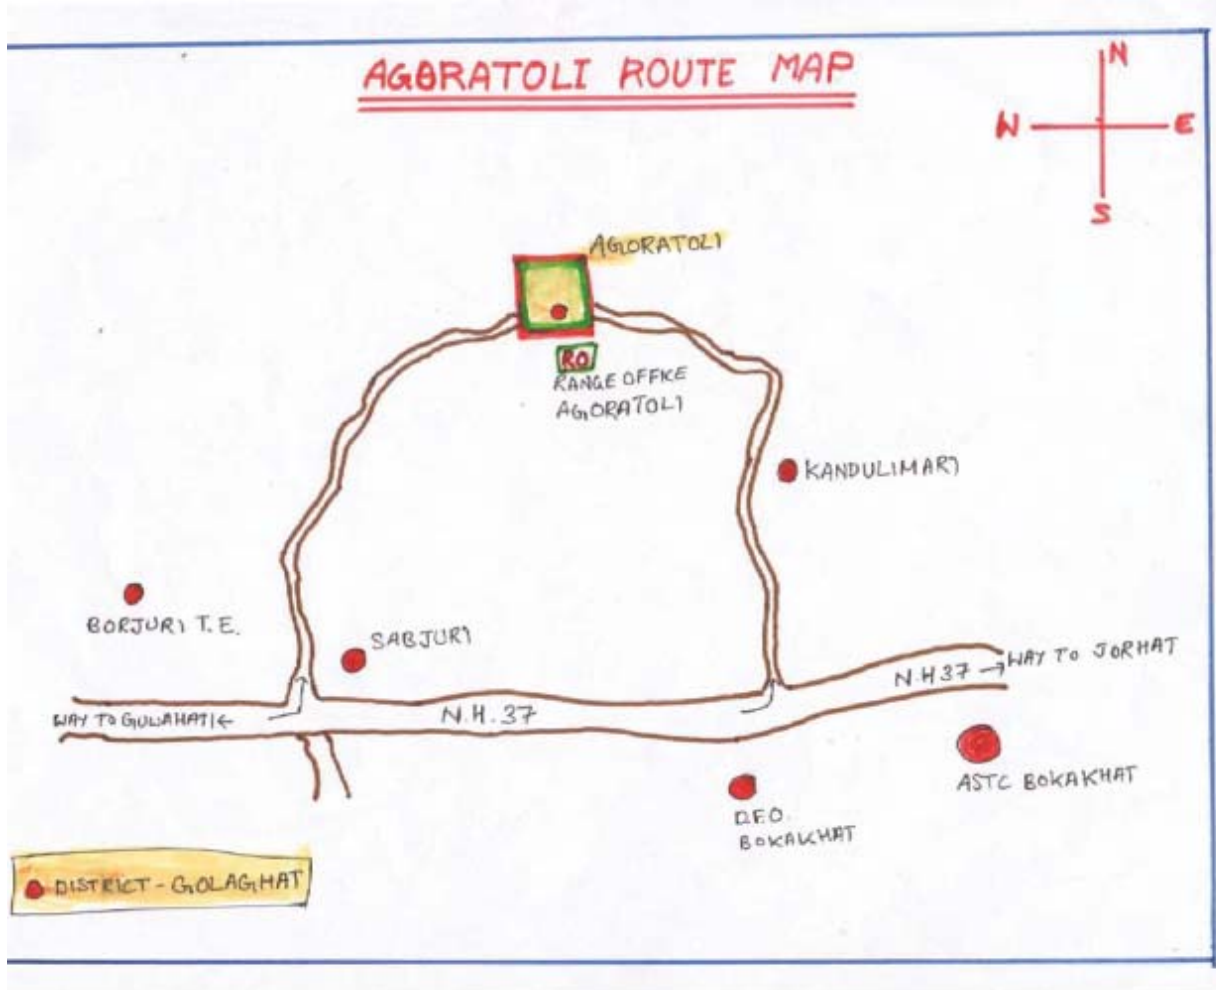 AGORATOLI ROUTE MAP
N
W E
S
AGORATOLI
RO
RANGE OFFICE
AGORATOLI
KANDULIMARI
BORJURI T.E.
SABJURI
WAY TO GUWAHATI ←
N.H.37
N.H37 → WAY TO JORHAT
ASTC BOKAKHAT
D.F.O.
BOKAKHAT
DISTRICT - GOLAGHAT